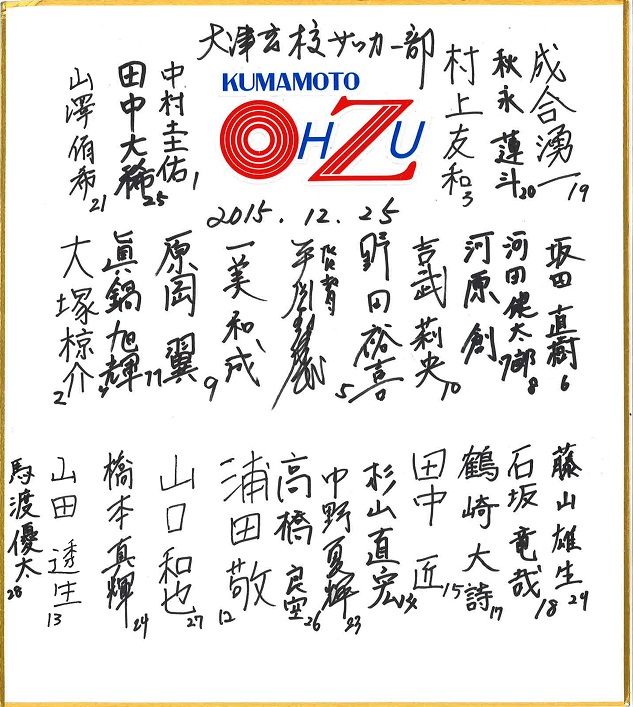 大津高校サッカー部
KUMAMOTO
OHZU
2015.12.25
成合湧一 19
秋永蓮斗 20
村上友和 3
中村圭佑 1
田中大稀 25
山澤佰希 21
坂田直樹 6
河田健太郎 8
河原創 7
吉武莉央 10
野田裕喜 5
監督
平岡和徳
一美和成 9
原岡翼 11
眞鍋旭輝 4
大塚椋介 2
藤山雄生 29
石坂竜哉 18
鶴崎大詩 17
田中匠 15
杉山直宏 14
中野夏輝 23
高橋良空 26
浦田敬 12
山口和也 27
橋本真輝 24
山田透生 13
馬渡優太 28